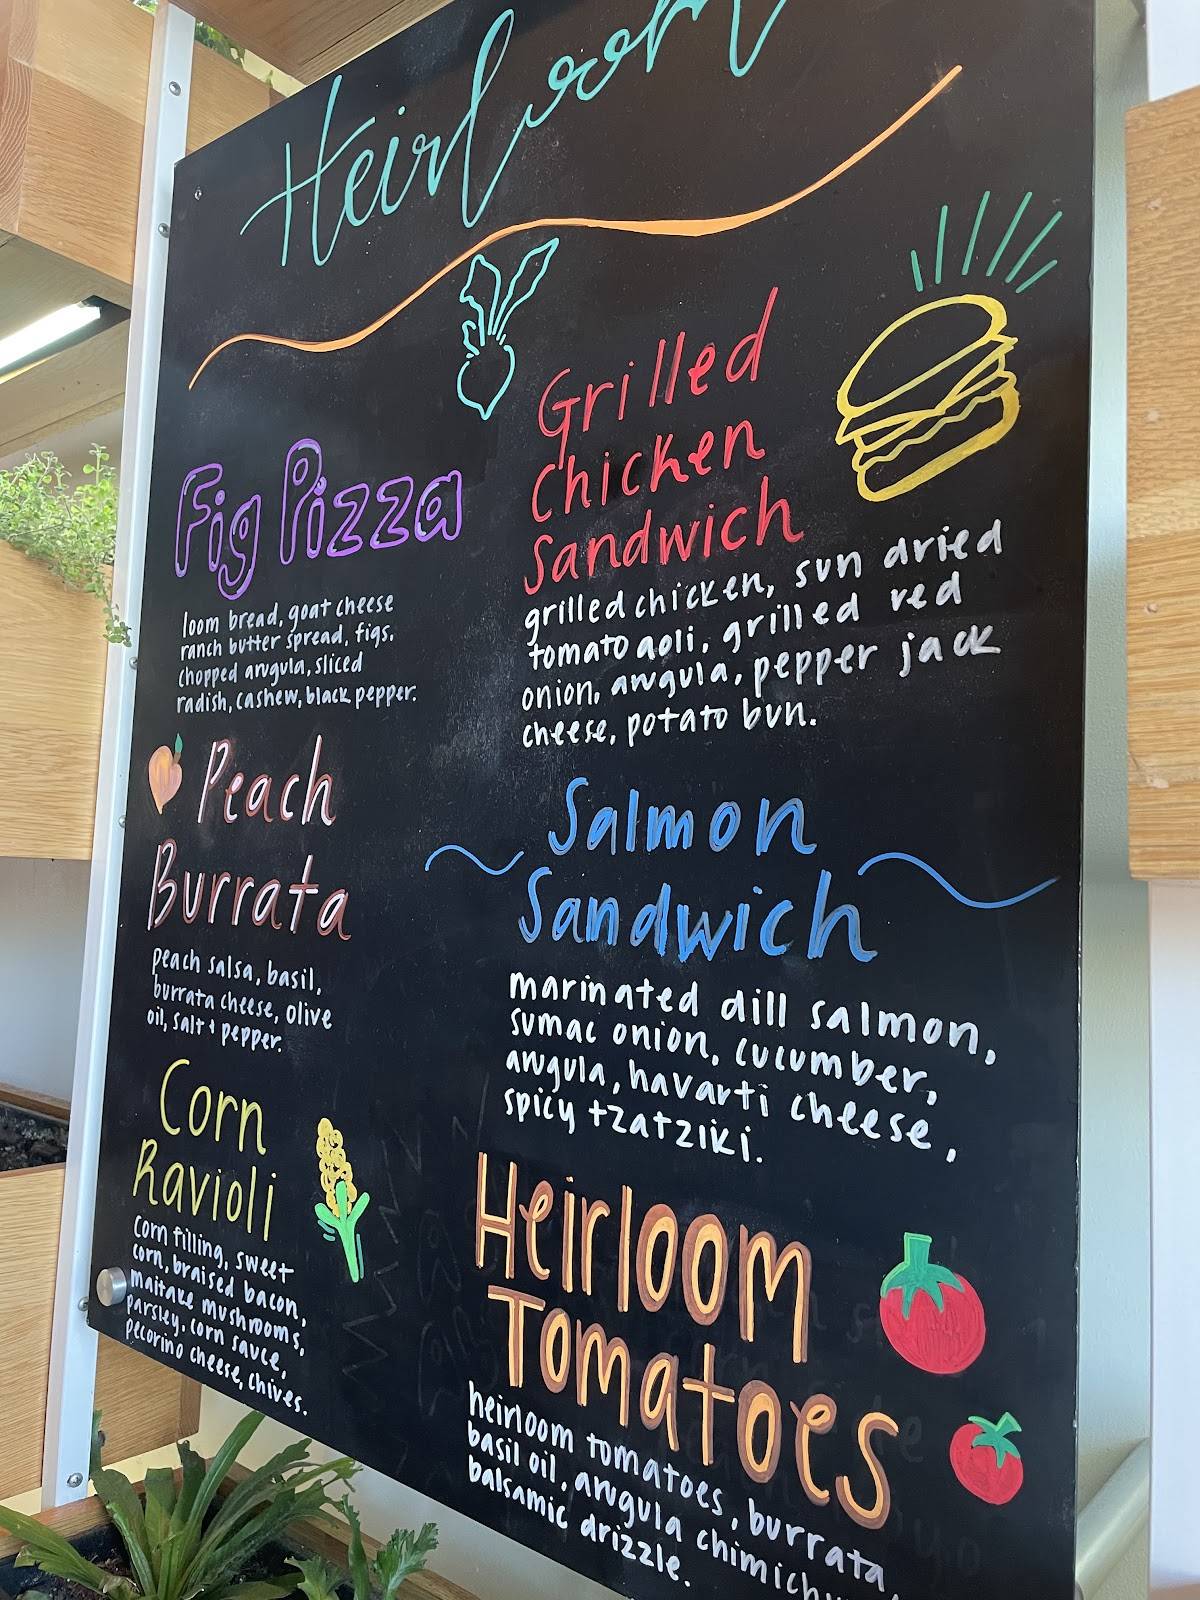 Heirloom
Fig Pizza
loom bread, goat cheese
ranch butter spread, figs.
chopped arugula, sliced
radish, cashew, black pepper.
Peach
Burrata
peach salsa, basil,
burrata cheese, olive
oil, salt + pepper.
Corn
Ravioli
corn filling, sweet
corn, braised bacon,
maitake mushrooms,
parsley, corn sauce,
pecorino cheese, chives.
Grilled
Chicken
Sandwich
grilled chicken, sun dried
tomato aoli, grilled red
onion, arugula, pepper jack
cheese, potato bun.
Salmon
Sandwich
marinated dill salmon,
sumac onion, cucumber,
arugula, havarti cheese,
spicy tzatziki.
Heirloom
Tomatoes
heirloom tomatoes, burrata,
basil oil, arugula
balsamic drizzle.